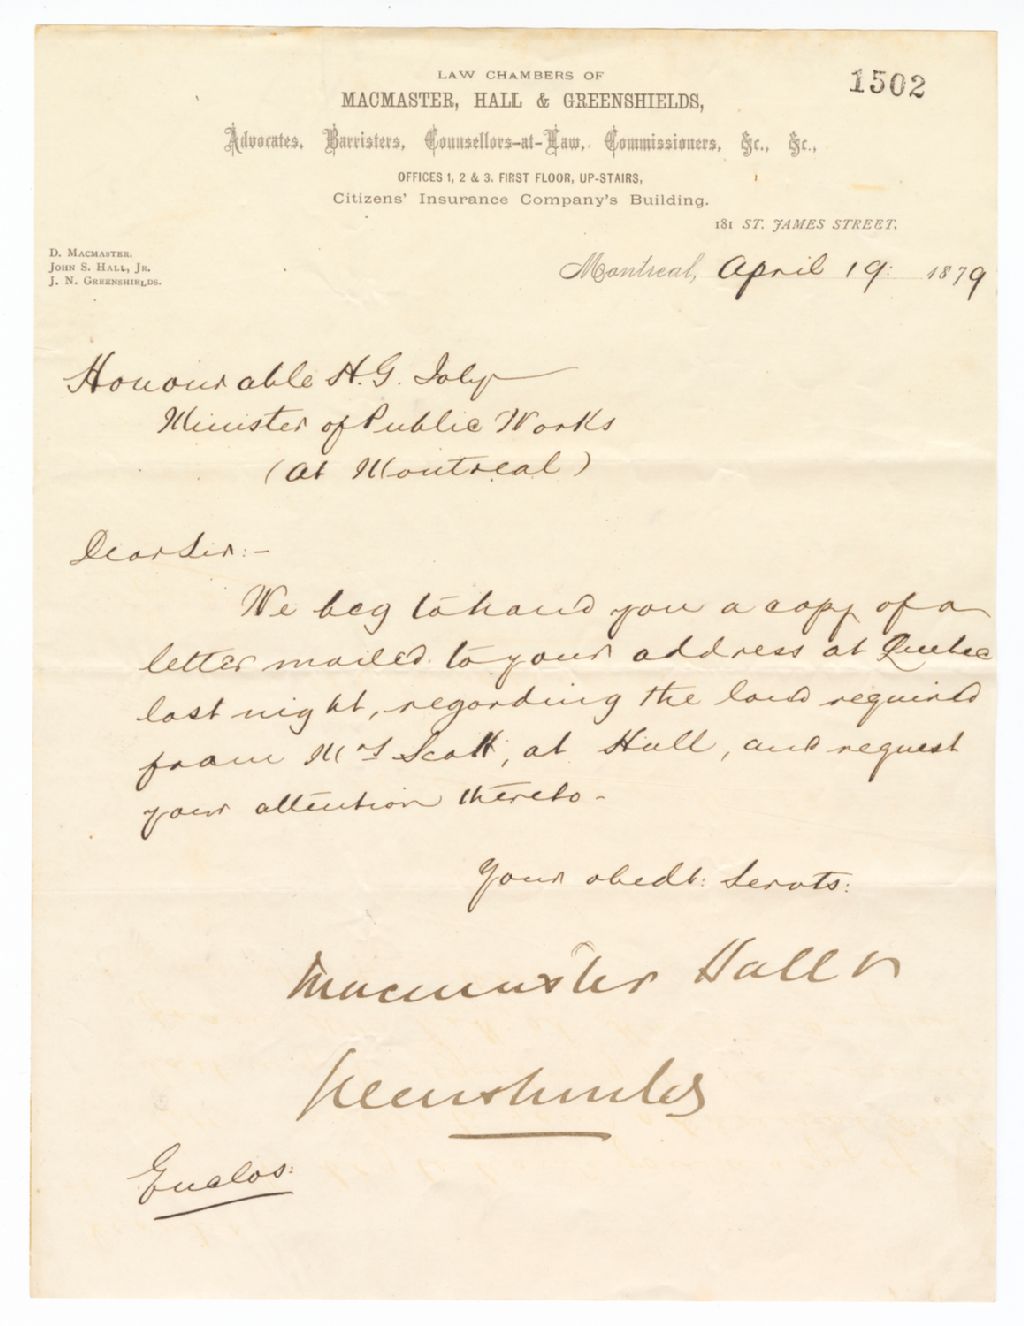 LAW CHAMBERS OF
1502
MACMASTER, HALL & GREENSHIELDS,
Advocates, Barristers, Counsellors-at-Law, Commissioners, &c., &c.,
OFFICES 1, 2 & 3, FIRST FLOOR, UP-STAIRS,
Citizens' Insurance Company's Building.
181 ST. JAMES STREET.
D. MACMASTER.
JOHN S. HALL, JR.
J. N. GREENSHIELDS.
Montreal, April 19 1879
Honourable H. G. Joly
Minister of Public Works
(at Montreal)
Dear Sir:-
We beg to hand you a copy of a
letter mailed to your address at Quebec
last night, regarding the land required
from Mrs Scott, at Hull, and request
your attention thereto-
Your obedt: Servts:
Macmaster Hall &
Greenshields
Enclos: